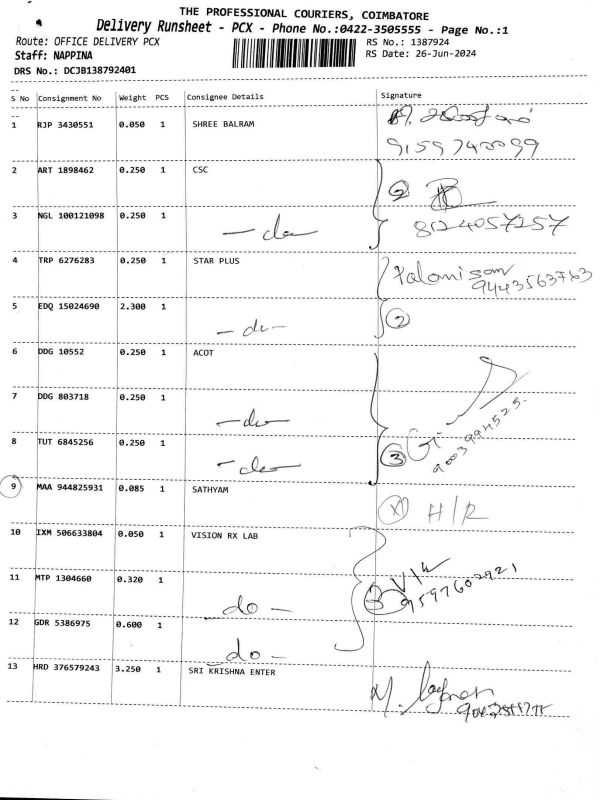 THE PROFESSIONAL COURIERS, COIMBATORE
Delivery Runsheet - PCX - Phone No.:0422-3505555 - Page No.:1
Route: OFFICE DELIVERY PCX
RS No.: 1387924
Staff: NAPPINA
RS Date: 26-Jun-2024
DRS No.: DCJB138792401
S No Consignment No Weight PCS Consignee Details Signature
1 RJP 3430551 0.050 1 SHREE BALRAM
2 ART 1898462 0.250 1 CSC
2
3 NGL 100121098 0.250 1 - do 8124057257
4 TRP 6276283 0.250 1 STAR PLUS Palanisam
9443563763
5 EDQ 15024690 2.300 1 - do - 2
6 DDG 10552 0.250 1 ACOT
7 DDG 803718 0.250 1 - do
8 TUT 6845256 0.250 1 - do 3 9003994525
9 MAA 944825931 0.085 1 SATHYAM X H/R
10 IXM 506633804 0.050 1 VISION RX LAB
11 MTP 1304660 0.320 1 do - 3 9597602921
12 GDR 5386975 0.600 1 do -
13 HRD 376579243 3.250 1 SRI KRISHNA ENTER